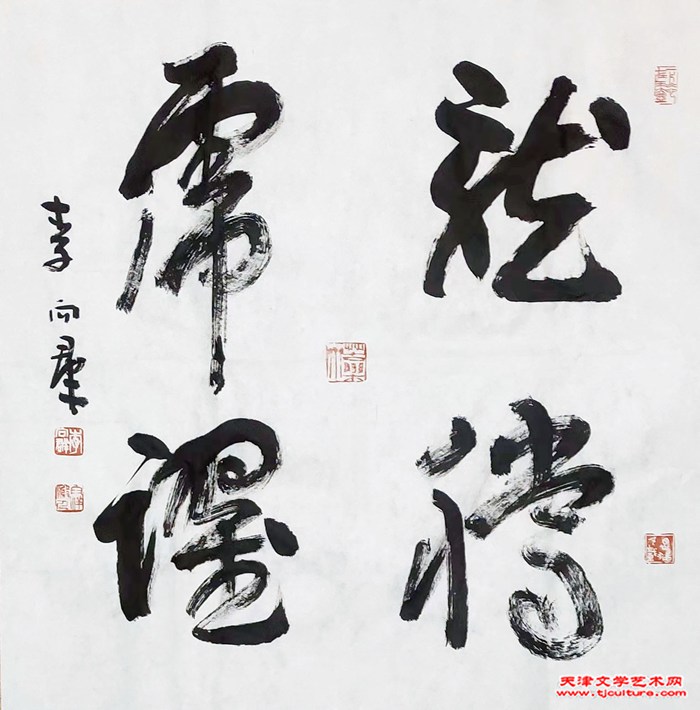 龍騰
虎躍
李向群
天津文学艺术网
www.tjculture.com